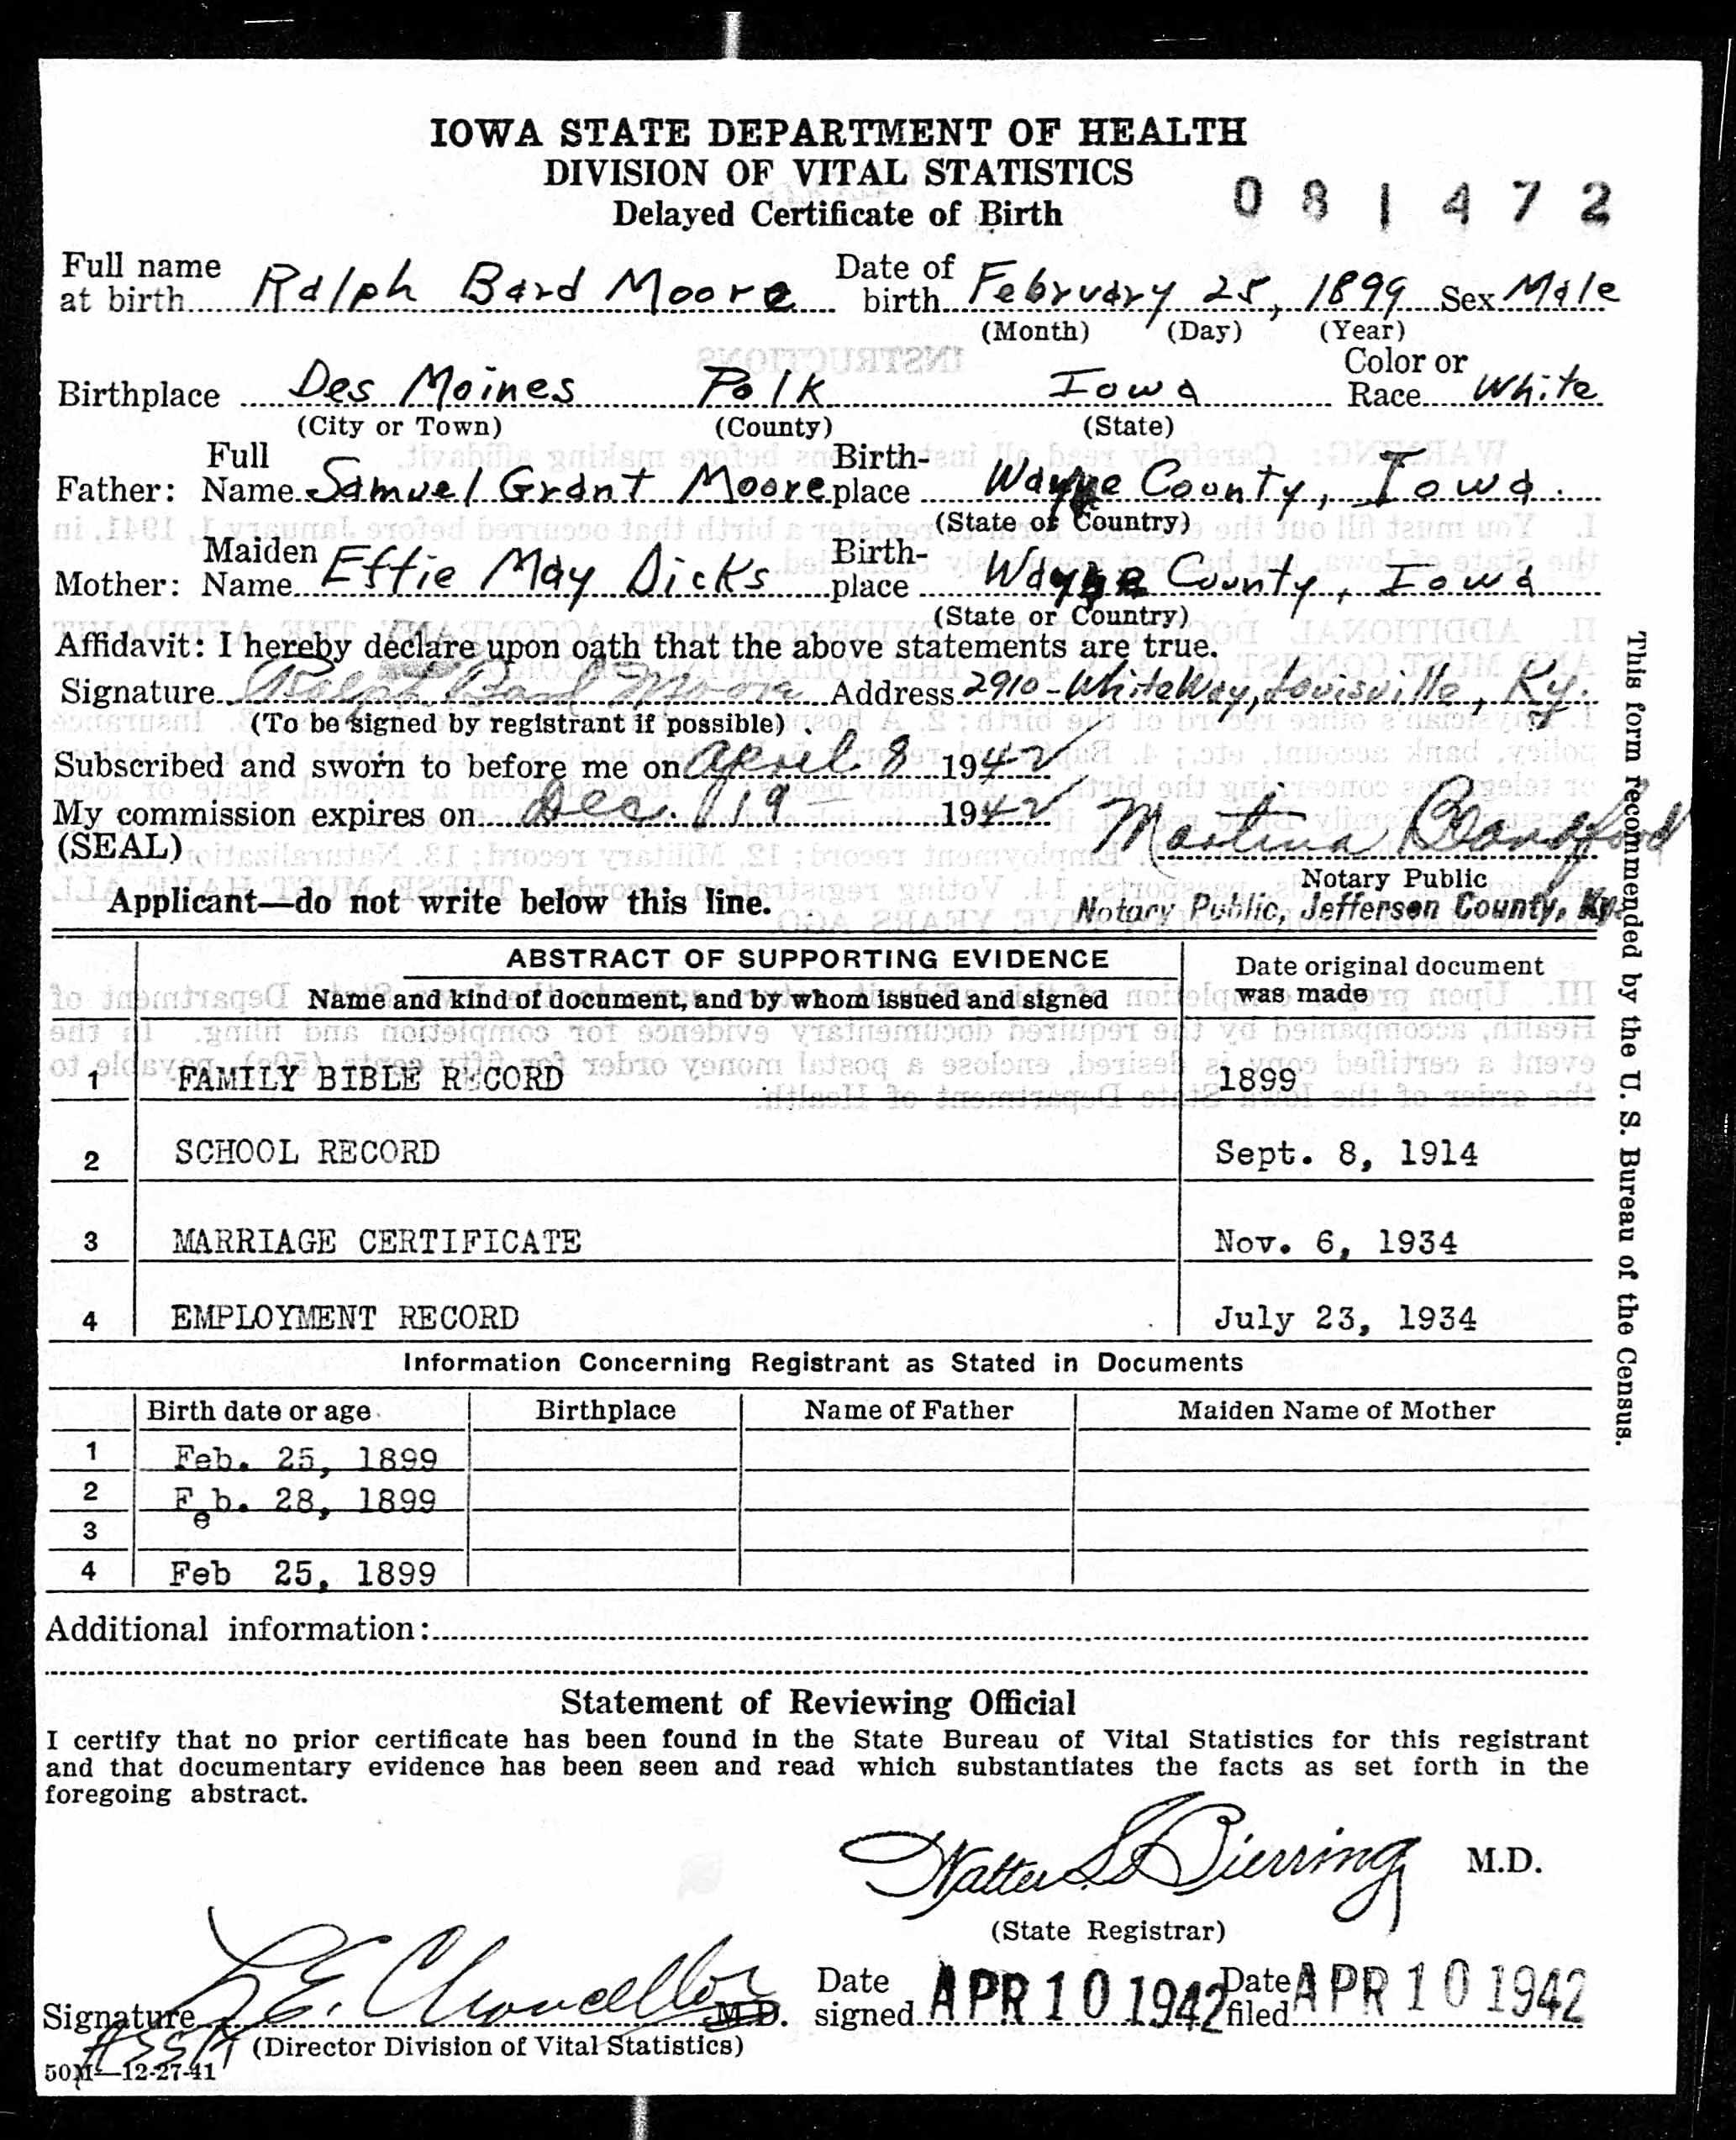 IOWA STATE DEPARTMENT OF HEALTH
DIVISION OF VITAL STATISTICS
Delayed Certificate of Birth 081472
Full name at birth Ralph Bard Moore Date of birth February 25, 1899 Sex Male
(Month) (Day) (Year)
Birthplace Des Moines Polk Iowa Color or Race White
(City or Town) (County) (State)
Father: Full Name Samuel Grant Moore Birth-place Wayne County, Iowa
(State or Country)
Mother: Maiden Name Effie May Dicks Birth-place Wayne County, Iowa
(State or Country)
Affidavit: I hereby declare upon oath that the above statements are true.
Signature Ralph Bard Moore Address 2910-WhiteWay, Louisville, Ky.
(To be signed by registrant if possible)
Subscribed and sworn to before me on April 8 1942
My commission expires on Dec. 19 1942 Martina Blandford
(SEAL)
Notary Public
Applicant—do not write below this line. Notary Public, Jefferson County, Ky.
ABSTRACT OF SUPPORTING EVIDENCE
Name and kind of document, and by whom issued and signed Date original document was made
1 FAMILY BIBLE RECORD 1899
2 SCHOOL RECORD Sept. 8, 1914
3 MARRIAGE CERTIFICATE Nov. 6, 1934
4 EMPLOYMENT RECORD July 23, 1934
Information Concerning Registrant as Stated in Documents
Birth date or age Birthplace Name of Father Maiden Name of Mother
1 Feb. 25, 1899
2 Feb. 28, 1899
3
4 Feb 25, 1899
Additional information:
Statement of Reviewing Official
I certify that no prior certificate has been found in the State Bureau of Vital Statistics for this registrant
and that documentary evidence has been seen and read which substantiates the facts as set forth in the
foregoing abstract.
Walter L Bierring M.D.
(State Registrar)
Signature L. E. Chancellor M.D. Date signed APR 10 1942 Date filed APR 10 1942
Ass't (Director Division of Vital Statistics)
50M—12-27-41
This form recommended by the U. S. Bureau of the Census.